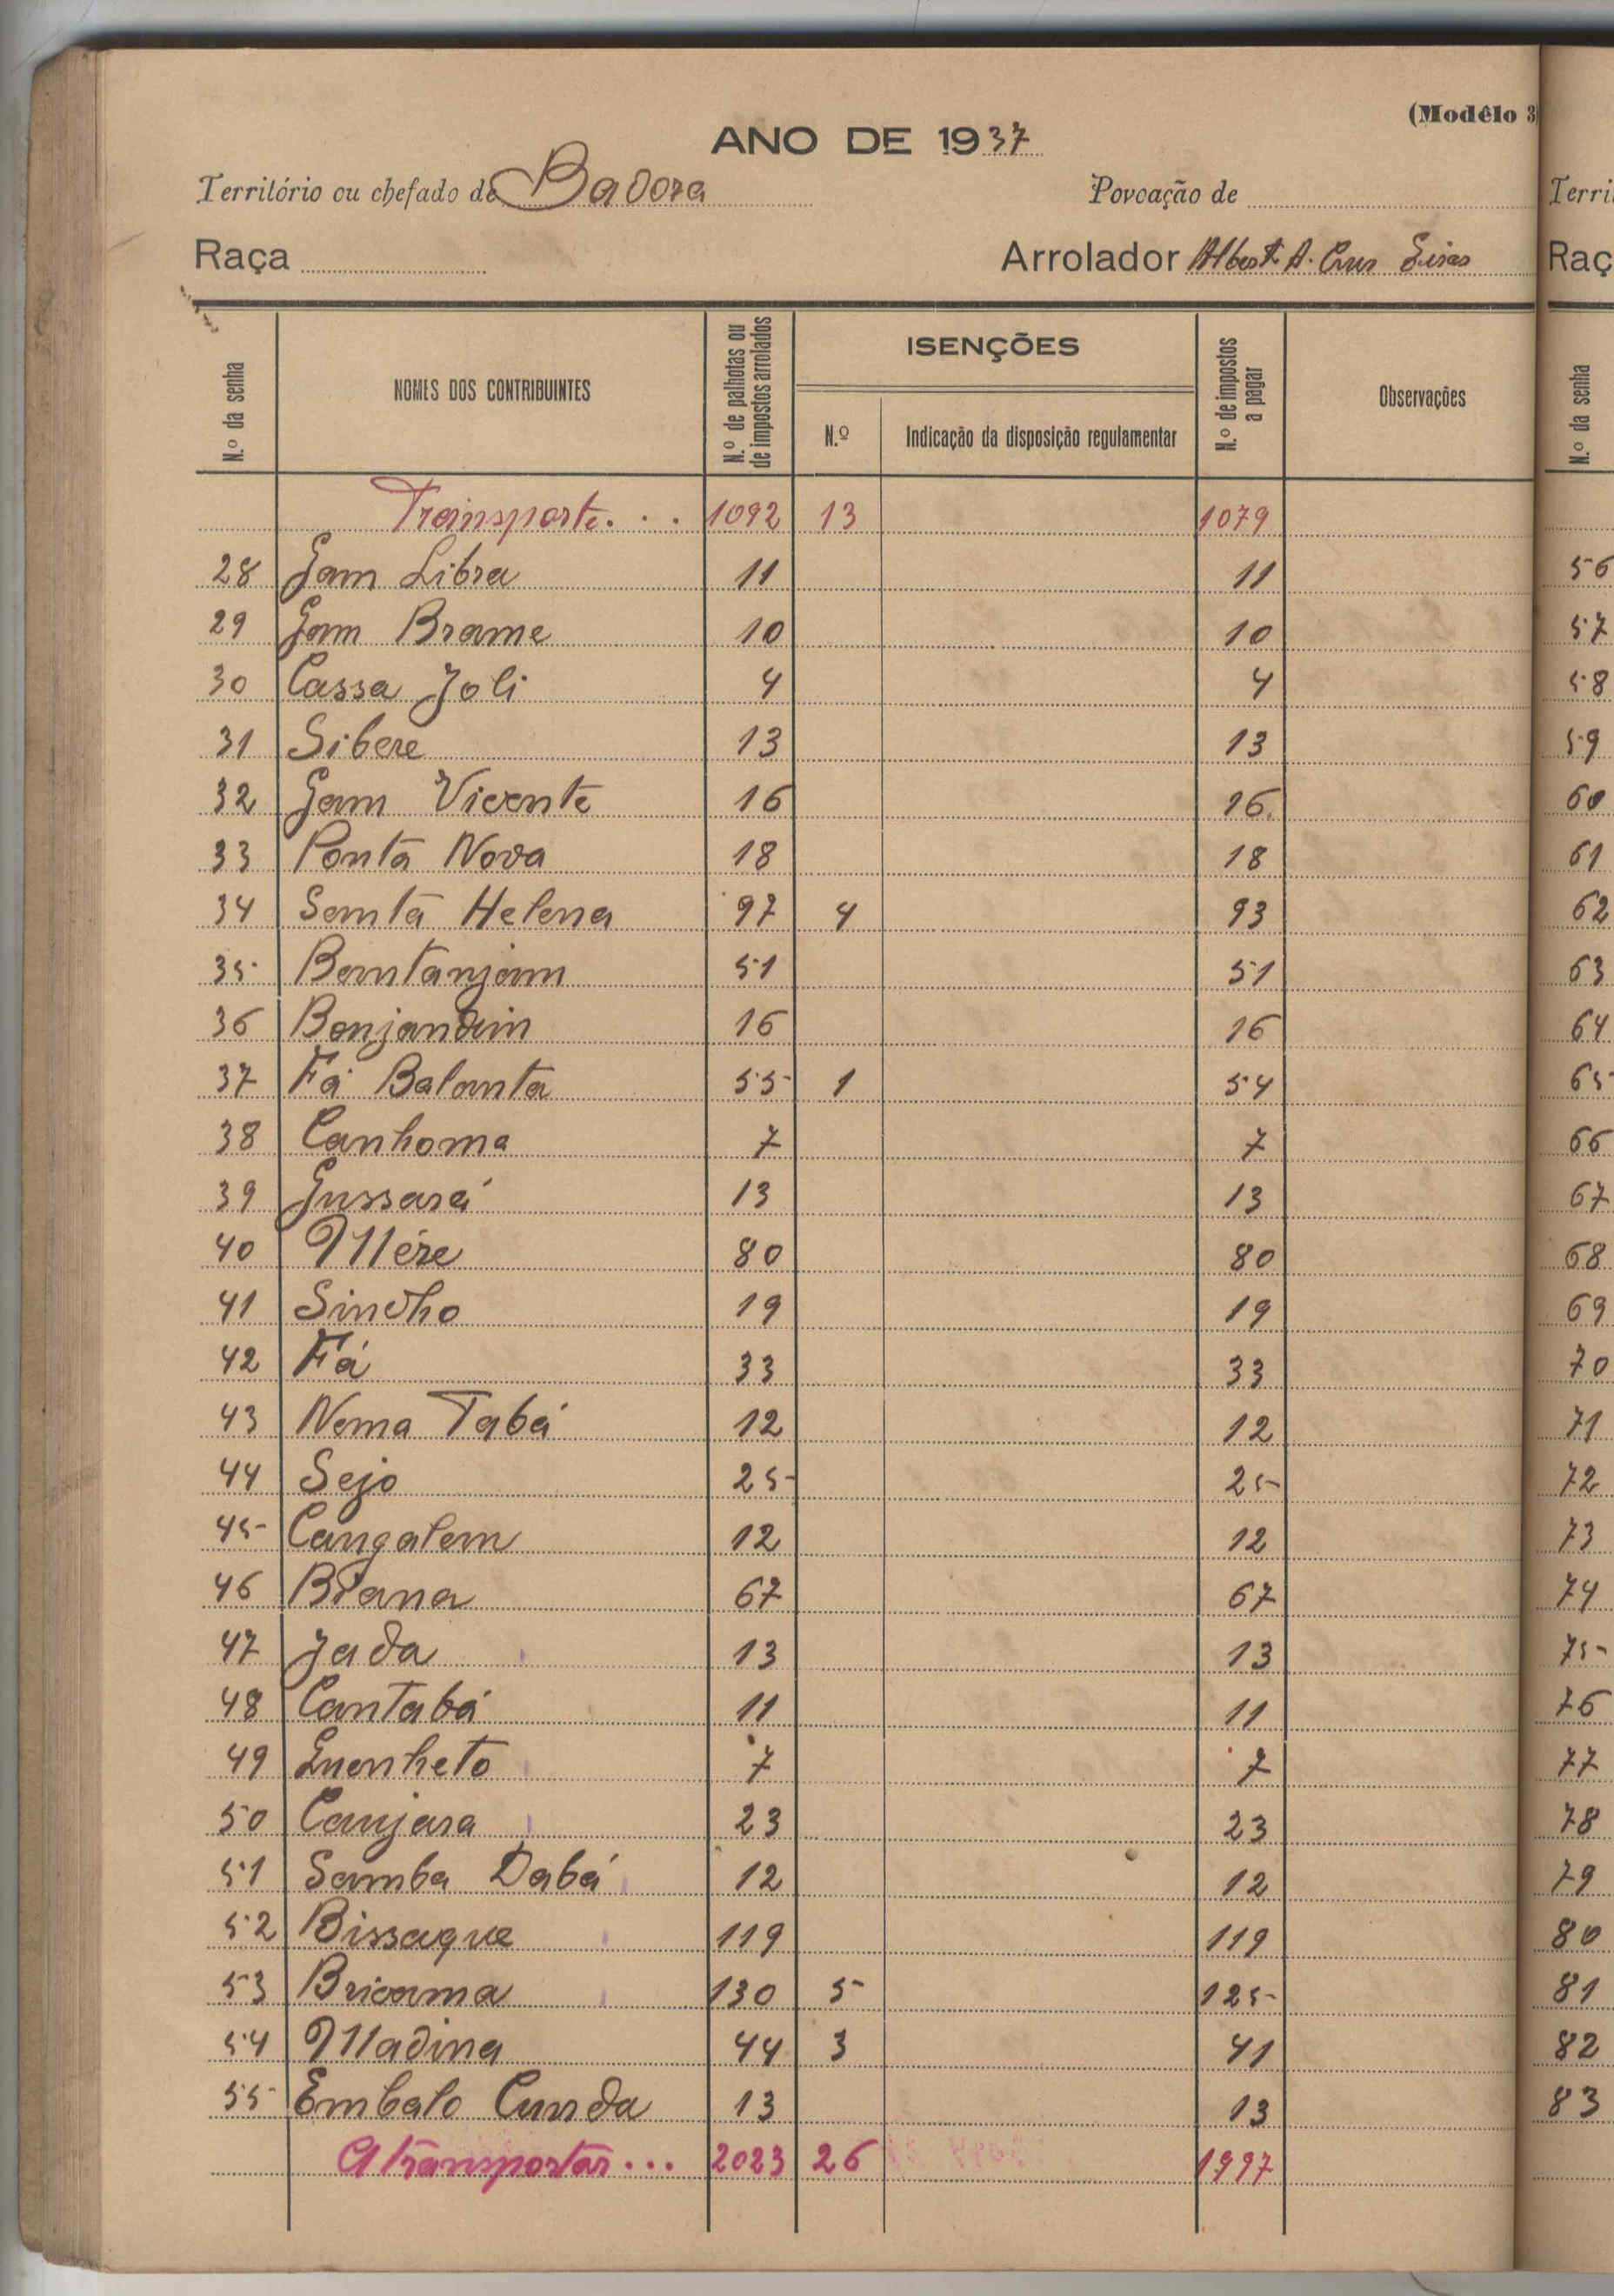 (Modêlo 3
ANO DE 1937
Território ou chefado de Badora Povoação de
Raça Arrolador Albert A. Cruz
N.º da senha
NOMES DOS CONTRIBUINTES
N.º de palhotas ou de impostos arrolados
ISENÇÕES
N.º
Indicação da disposição regulamentar
N.º de impostos a pagar
Observações
Transporte... 1092 13 1079
28 Gam Libra 11 11
29 Gam Brame 10 10
30 Cassa Joli 4 4
31 Sibere 13 13
32 Gam Vicente 16 16
33 Ponta Nova 18 18
34 Santa Helena 97 4 93
35 Bantanjam 51 51
36 Bonjandim 16 16
37 Fá Balanta 55 1 54
38 Canhoma 7 7
39 Gussará 13 13
40 Mére 80 80
41 Sincho 19 19
42 Fá 33 33
43 Nema Tabá 12 12
44 Sejo 25 25
45 Cangalem 12 12
46 Biana 67 67
47 Jada 13 13
48 Cantabá 11 11
49 Guenheto 7 7
50 Canjara 23 23
51 Samba Dabá 12 12
52 Bissaque 119 119
53 Bricama 130 5 125
54 Madina 44 3 41
55 Embalo Cunda 13 13
A transportar... 2023 26 1997
Terri
Raç
N.º da senha
56
57
58
59
60
61
62
63
64
65
66
67
68
69
70
71
72
73
74
75
76
77
78
79
80
81
82
83